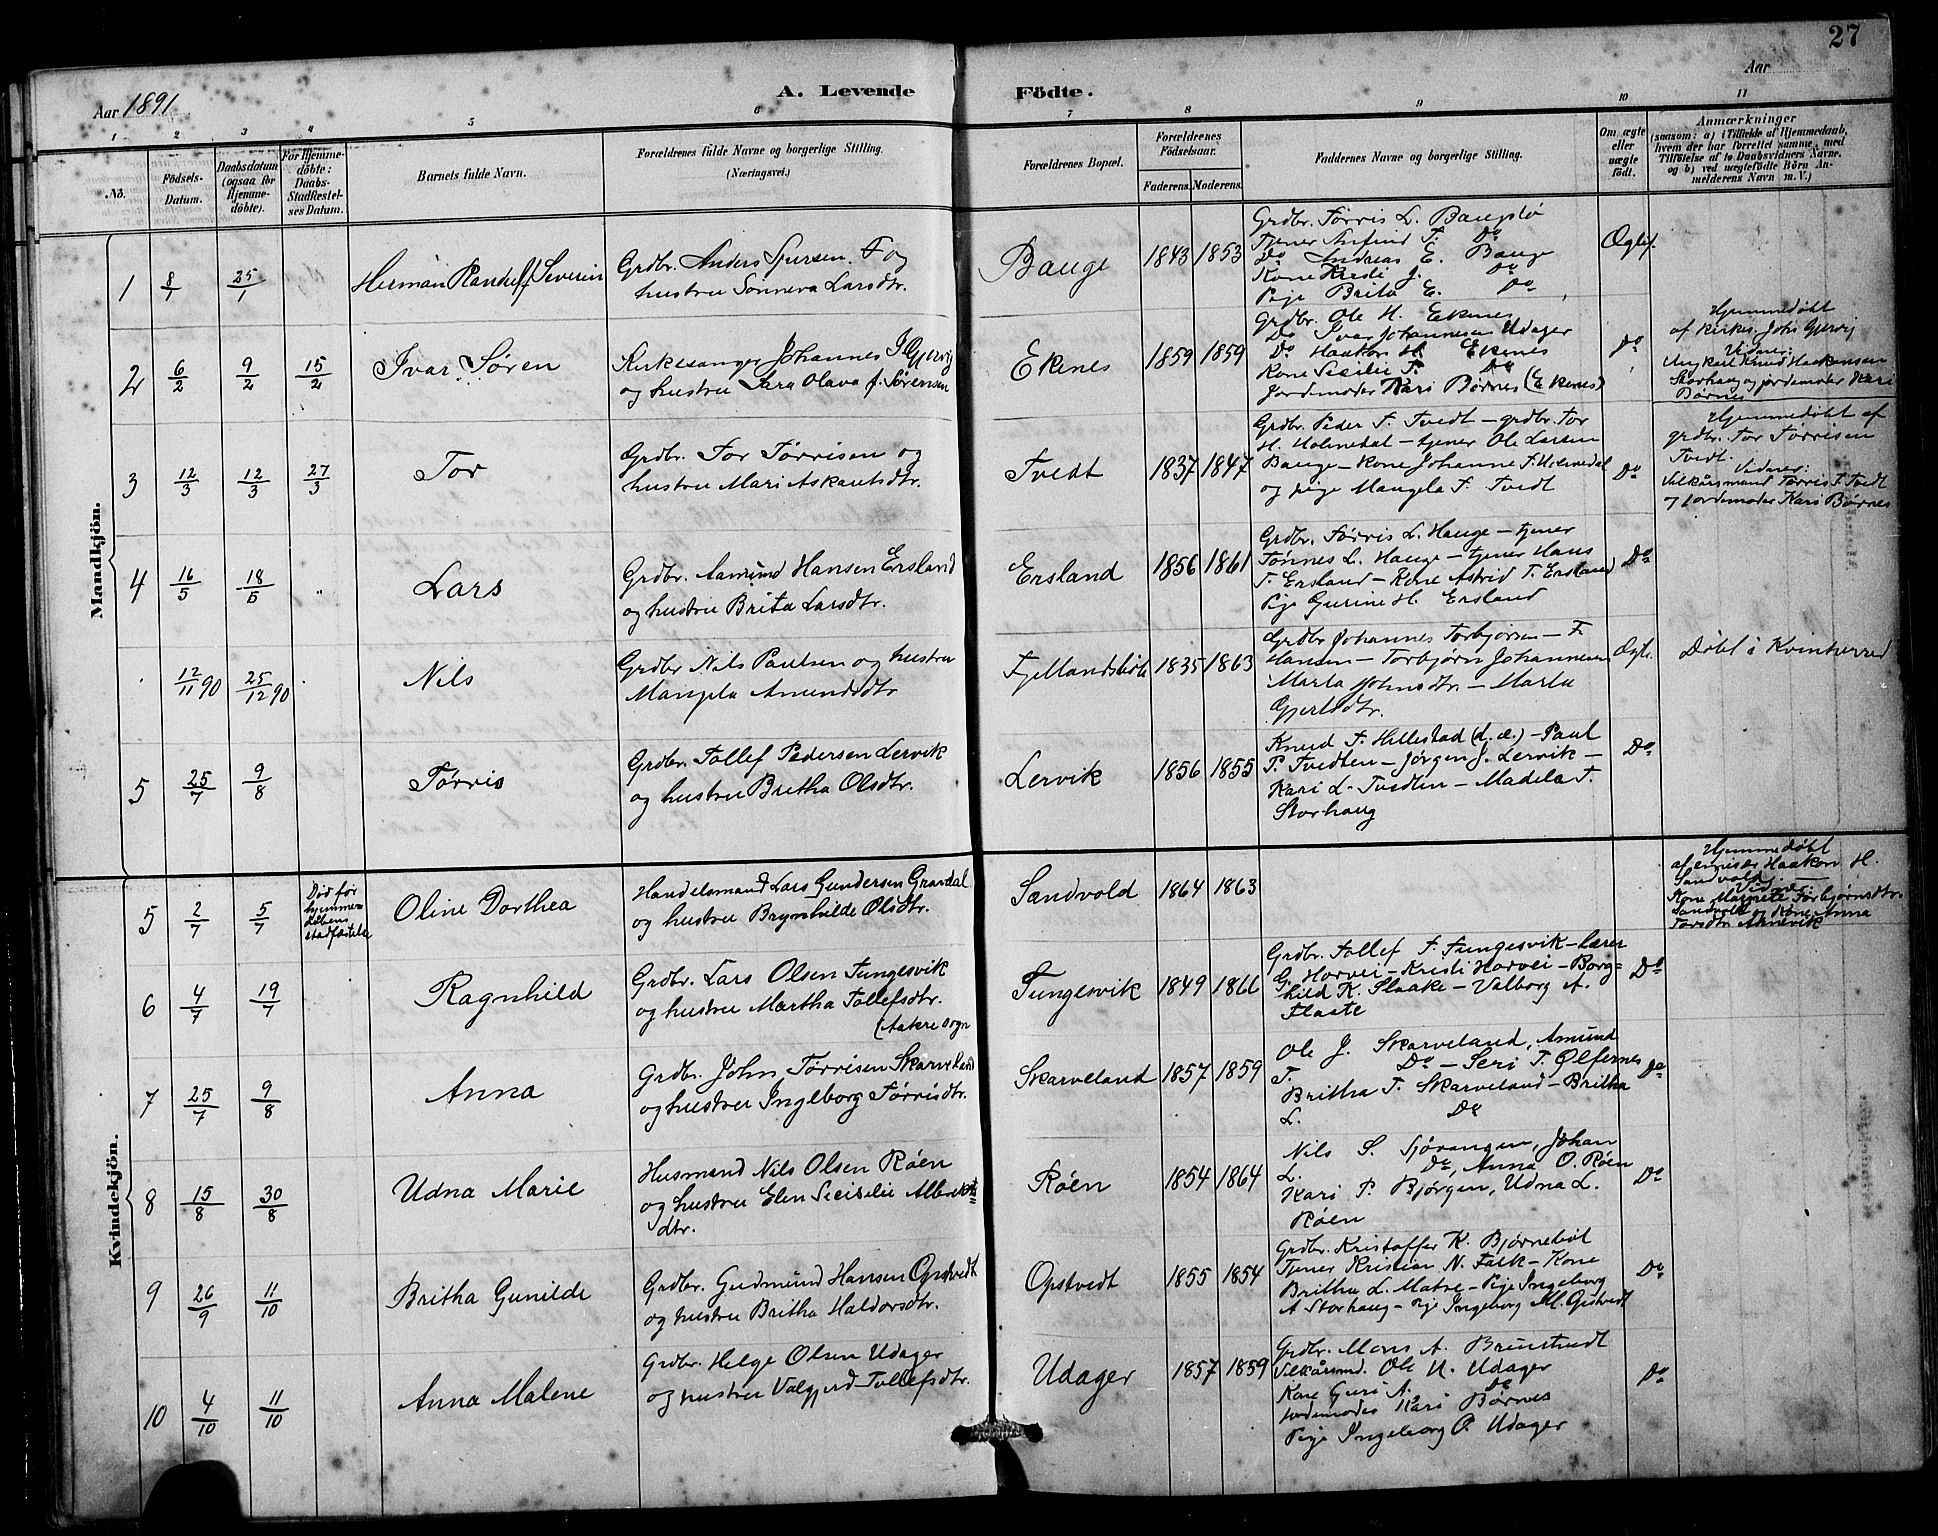 27
Aar 1891
A. Levende Födte.
Aar
1 2 3 4 5 6 7 8 9 10 11
No.
Födsels-Datum.
Daabsdatum (ogsaa for Hjemme-döbte).
For Hjemme-döbte: Daabs-Stadfæstel-ses Datum.
Barnets fulde Navn.
Forældrenes fulde Navne og borgerlige Stilling. (Næringsvei.)
Forældrenes Bopæl.
Forældrenes Födselsaar.
Faderens. Moderens.
Faddernes Navne og borgerlige Stilling.
Om ægte eller uægte født.
Anmærkninger
(saasom: a) i Tilfælde af Hjemmedaab,
hvem der har forrettet samme, med
Tilføielse af to Daabsvidners Navne,
og b) ved uægtefödte Börn An-
melderens Navn m. V.)
Mandkjön.
1 8/1 25/1 Herman Randulf Severin
Grdbr. Anders Sjursen. F og
hustru Sønneva Larsdtr.
Bauge 1843 1853
Grdbr. Tørris L. Baugstø
Tjener Anfind T. Do
Do Andreas E. Bauge
Kone J. Do
Pige Brita E. Do
Ægtef.
2 6/2 9/2 15/2 Ivar Søren
Kirkesanger Johannes I Gjervig
og hustru Sara Olava f. Sørensen
Ekenes 1859 1859
Grdbr. Ole H. Ekenes
Do Ivar Johannesen Udager
Do Haakon H Ekenes
Kone Sesilie T. Do
Jordemoder Kari Børnes (Ekenes)
Do
Hjemmedøbt
af Kirkes. John Gjervig
Vidner:
Ungkarl Knud Haakensen
Storhaug og jordemoder Kari
Børnes
3 12/3 12/3 27/3 Tor
Grdbr. Tor Tørrisen og
hustru Mari Askautsdtr.
Tvedt 1837 1847
Grdbr. Peder T. Tvedt – grdbr. Tor
H. Holmedal – tjener Ole Larsen
Bauge – Kone Johanne T. Holmedal
og pige Mangela T. Tvedt
Do
Hjemmedøbt af
grdbr. Tor Tørrisen
Tvedt.
Vidner:
Vilkårsmand Tørris T. Tvedt
og jordemoder Kari Børnes
4 16/5 18/5 " Lars
Grdbr. Aamund Hansen Ersland
og hustru Brita Larsdtr.
Ersland 1856 1861
Grdbr. Tørris L. Hauge – tjener
Tønnes L. Hauge – tjener Hans
T. Ersland – Kone Astrid T. Ersland
Pige Gurine H. Ersland
Do
12/11 90 25/12 90 Nils
Grdbr Nils Paulsen og hustru
Mangela Amundsdtr
1835 1863
Grdbr Johannes Torbjørnsen – F.
Hansen – Torbjørn Johannesen
Marta Johnsdtr. – Marta
Gjertsdtr.
Ægte.
Døbt i Kvinherred
5 25/7 9/8 Tørris
Grdbr. Tollef Pedersen Lervik
og hustru Britha Olsdtr.
Lervik 1856 1855
Knud T. Hillestad (d. æ.) – Paul
P. Tvedten – Jørgen J. Lervik –
Kari L. Tvedten – Madela T.
Storhaug
Do
Kvindekjön.
5 2/7 5/7 Død før hjemme-daabens stadfæstelse Oline Dorthea
Handelsmand Lars Gundersen Grandal
og hustru Brynhilde Olsdtr.
Sandvold 1864 1863
Hjemmedøbt
af emisær Haakon H.
Sandvold. –
Vidner:
Kone Margrete Torbjørnsdtr.
Sandvold og Kone Anna
Torsdtr. Aknevik
6 4/7 19/7 Ragnhild
Grdbr. Lars Olsen Tungesvik
og hustru Martha Tollefsdtr.
(Aakre sogn
Tungesvik 1849 1866
Grdbr. Tollef T. Tungesvik – lærer
G. Horvei – Kristi Horvei – Borg=
hild K. Slaake – Valborg A.
Flaate
Do
7 25/7 9/8 Anna
Grdbr. John Tørrisen Skarveland
og hustru Ingeborg Tørrisdtr.
Skarveland 1857 1859
Ole J. Skarveland, Amund
T. Do – Seri T. Ølfernes
Britha T. Skarveland – Britha
L. Do
Do
8 15/8 30/8 Udna Marie
Husmand Nils Olsen Røen
og hustru Elen Secisilie Albrekts=
dtr.
Røen 1854 1864
Nils S. Sjørangen, Johan
L. Do, Anna O. Røen
Kari P. Bjørgen, Udna L.
Røen
Do
9 26/9 11/10 Britha Gunilde
Grdbr. Gudmund Hansen Opstvedt
og hustru Britha Haldorsdtr.
Opstvedt 1855 1854
Grdbr. Kristoffer K. Bjørnebøl
Tjener Kristian N. Falk – Kone
Britha L. Matre – Pige Ingeborg
A Storhaug – Pige Ingeborg M. Opstvedt
Do
10 4/10 11/10 Anna Malene
Grdbr. Helge Olsen Udager
og hustru Valgjerd Tollefsdtr.
Udager 1857 1859
Grdbr. Mons A. Brunstvedt
Vilkårsmd. Ole N. Udager
Kone Guri A. Do
jordemoder Kari Børnes
Pige Ingeborg O. Udager
Do